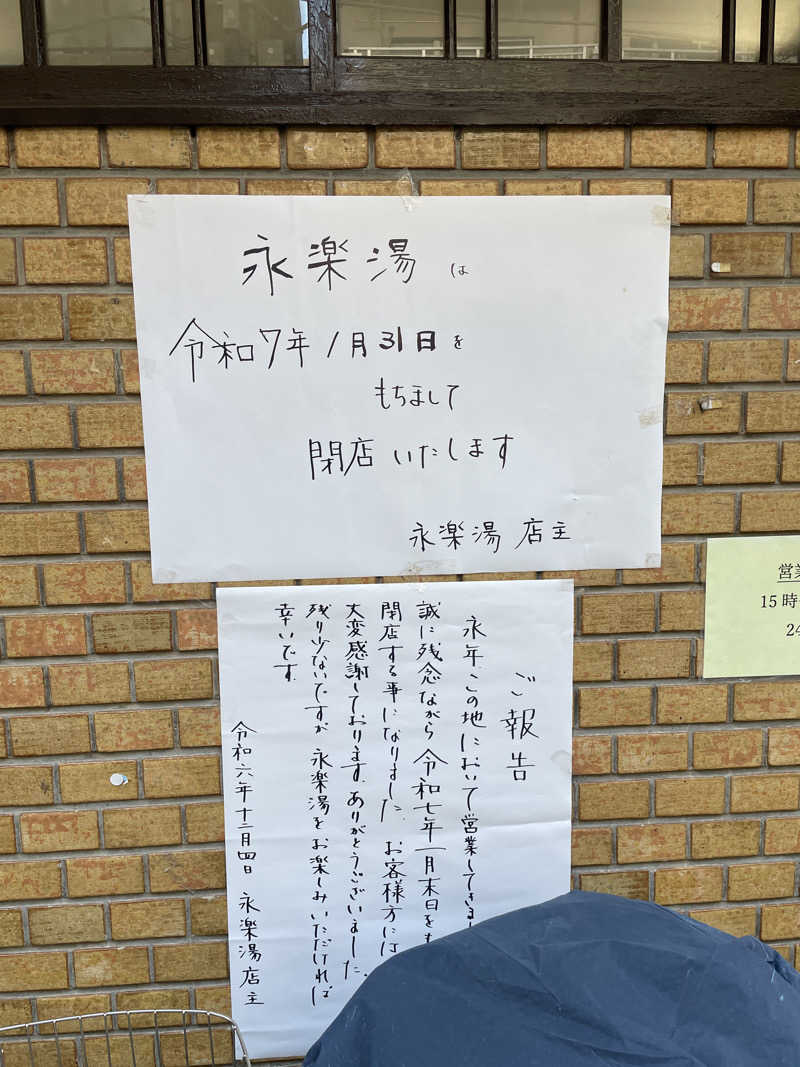 永楽湯は
令和7年1月31日を
もちまして
閉店いたします
永楽湯 店主
ご報告
永年、この地において営業してきま
誠に残念ながら 令和七年一月末日をも
閉店する事になりました。お客様方には
大変感謝しております。ありがとうございました。
残り少ないですが 永楽湯をお楽しみいただければ
幸いです。
令和六年十二月四日 永楽湯店主
営業
15時
24